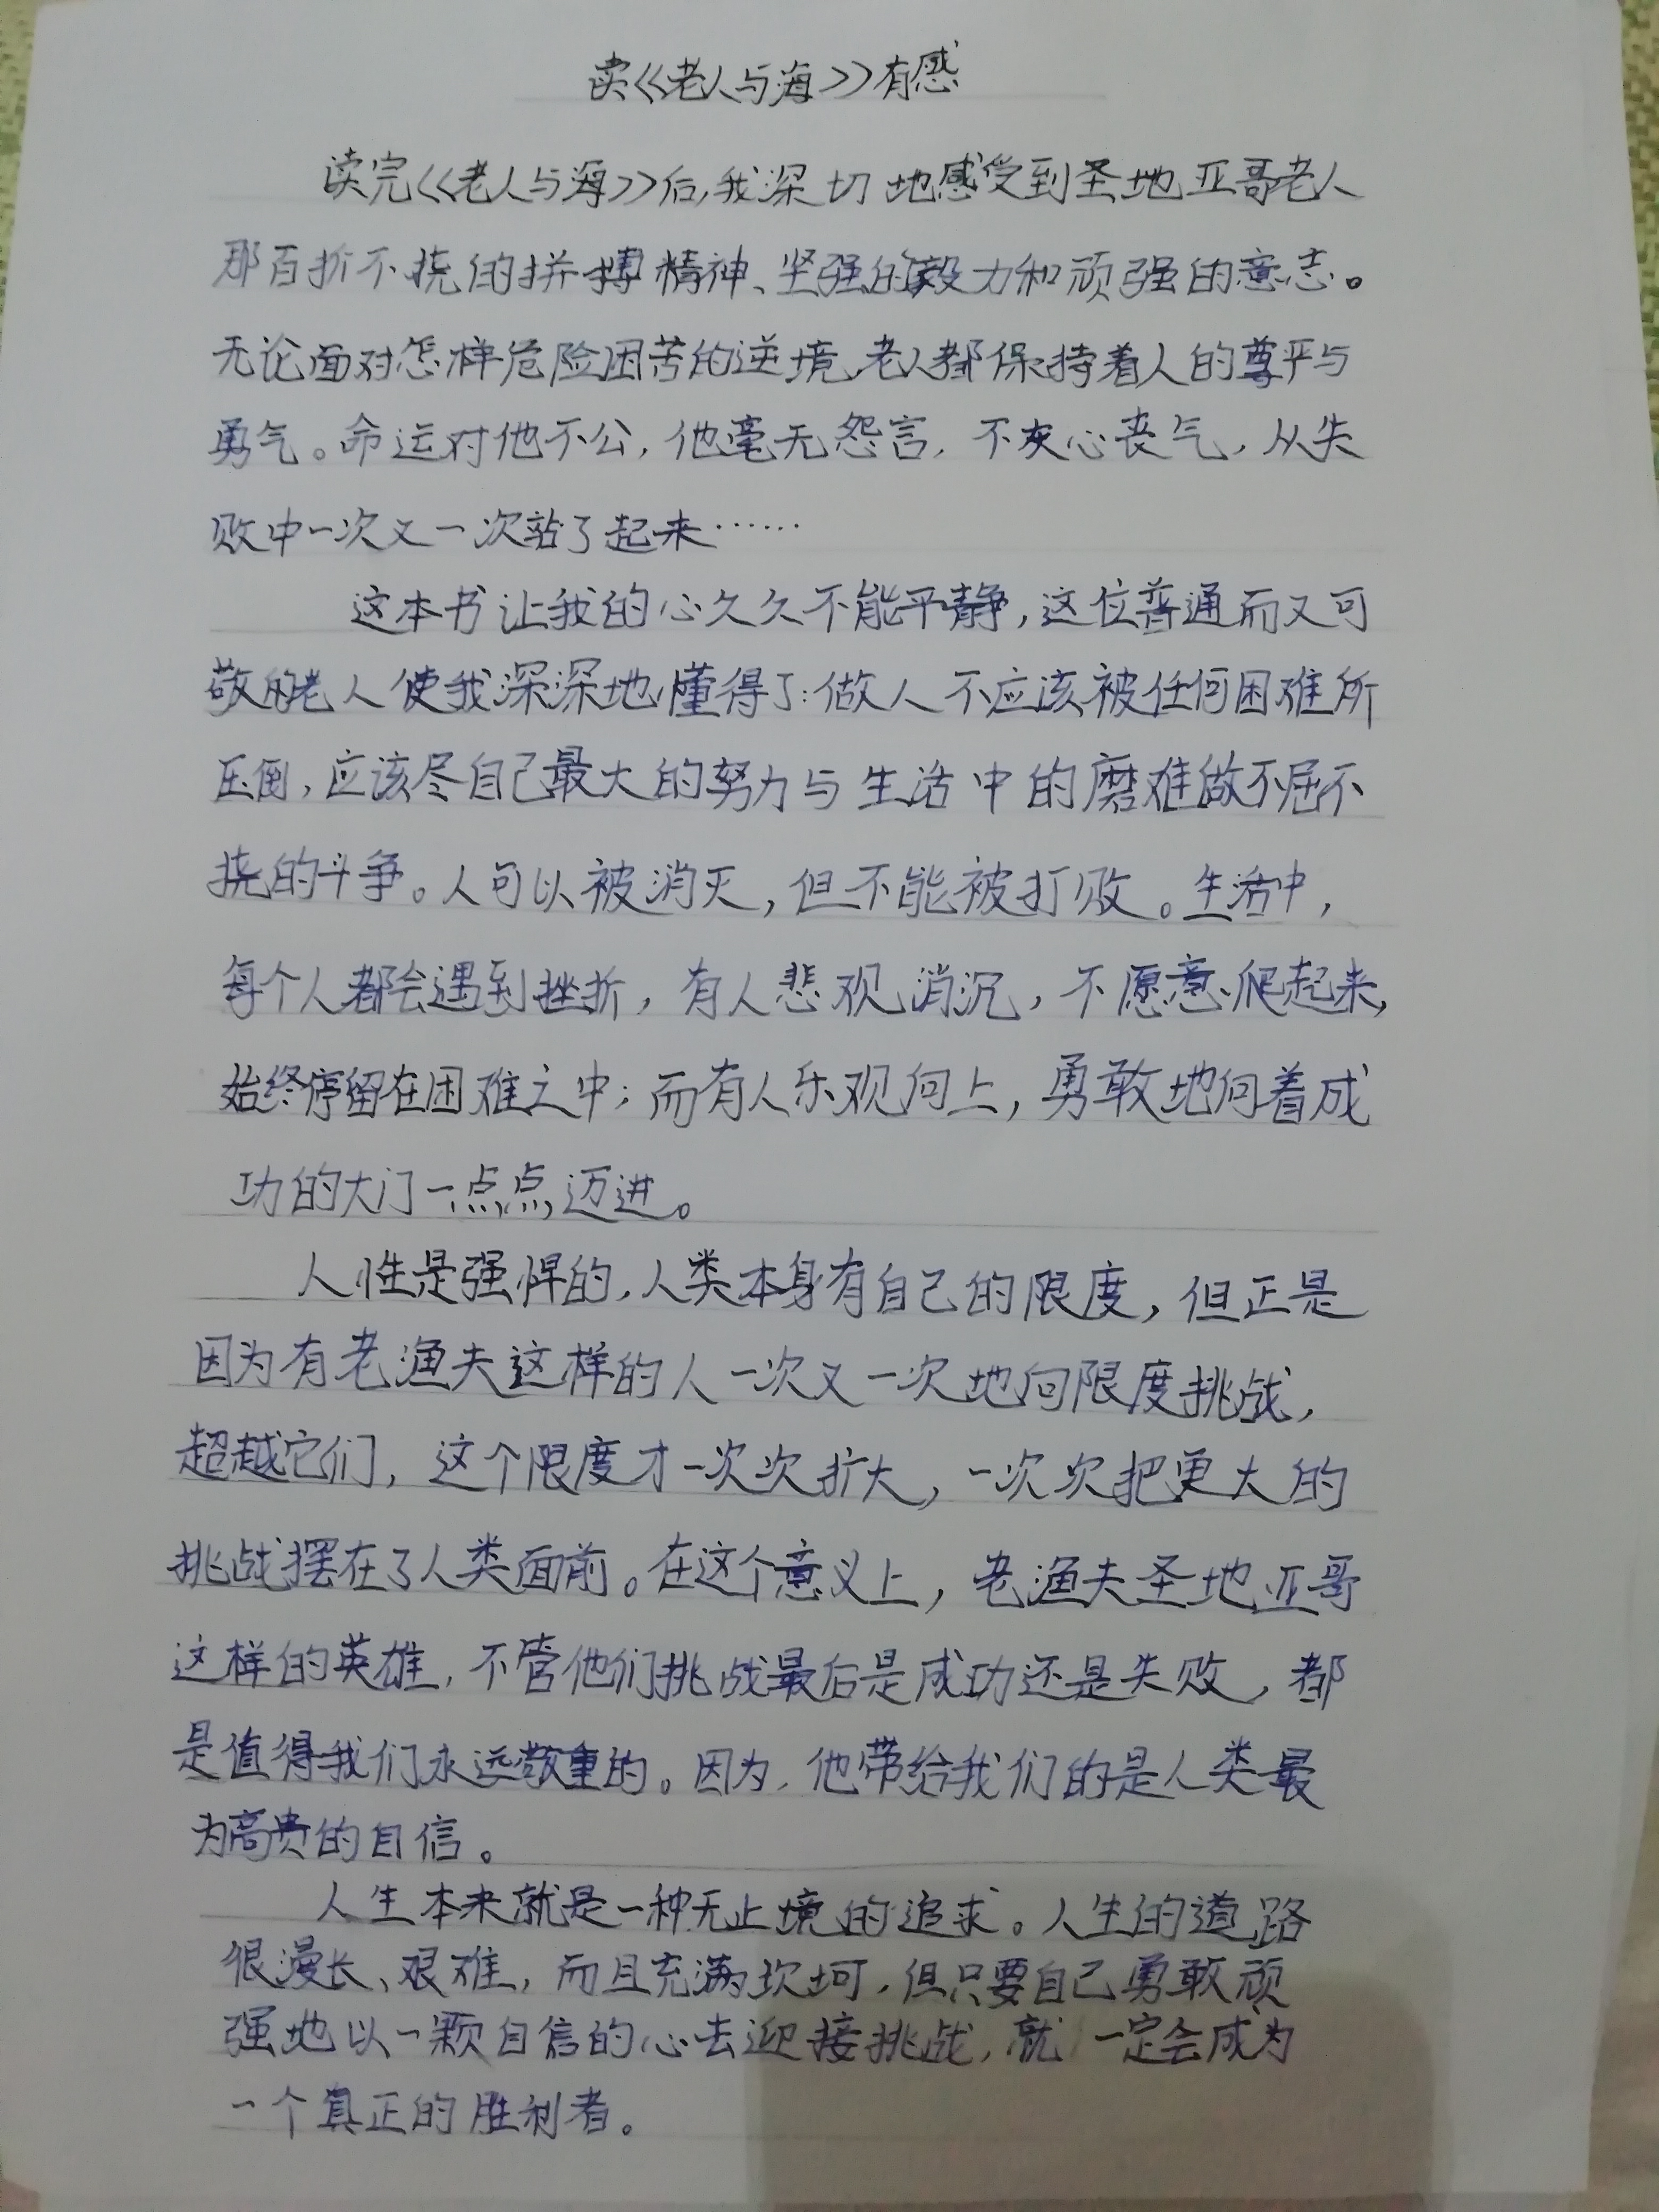 读《老人与海》有感
读完《老人与海》后,我深切地感受到圣地亚哥老人
那百折不挠的拼搏精神、坚强的毅力和顽强的意志。
无论面对怎样危险困苦的逆境,老人都保持着人的尊严与
勇气。命运对他不公,他毫无怨言,不灰心丧气,从失
败中一次又一次站了起来……
这本书让我的心久久不能平静,这位普通而又可
敬的老人使我深深地懂得了:做人不应该被任何困难所
压倒,应该尽自己最大的努力与生活中的磨难做不屈不
挠的斗争。人可以被消灭,但不能被打败。生活中,
每个人都会遇到挫折,有人悲观消沉,不愿意爬起来,
始终停留在困难之中;而有人乐观向上,勇敢地向着成
功的大门一点点迈进。
人性是强悍的,人类本身有自己的限度,但正是
因为有老渔夫这样的人一次又一次地向限度挑战,
超越它们,这个限度才一次次扩大,一次次把更大的
挑战摆在了人类面前。在这个意义上,老渔夫圣地亚哥
这样的英雄,不管他们挑战最后是成功还是失败,都
是值得我们永远敬重的。因为,他带给我们的是人类最
为高贵的自信。
人生本来就是一种无止境的追求。人生的道路
很漫长、艰难,而且充满坎坷,但只要自己勇敢顽
强地以一颗自信的心去迎接挑战,就一定会成为
一个真正的胜利者。